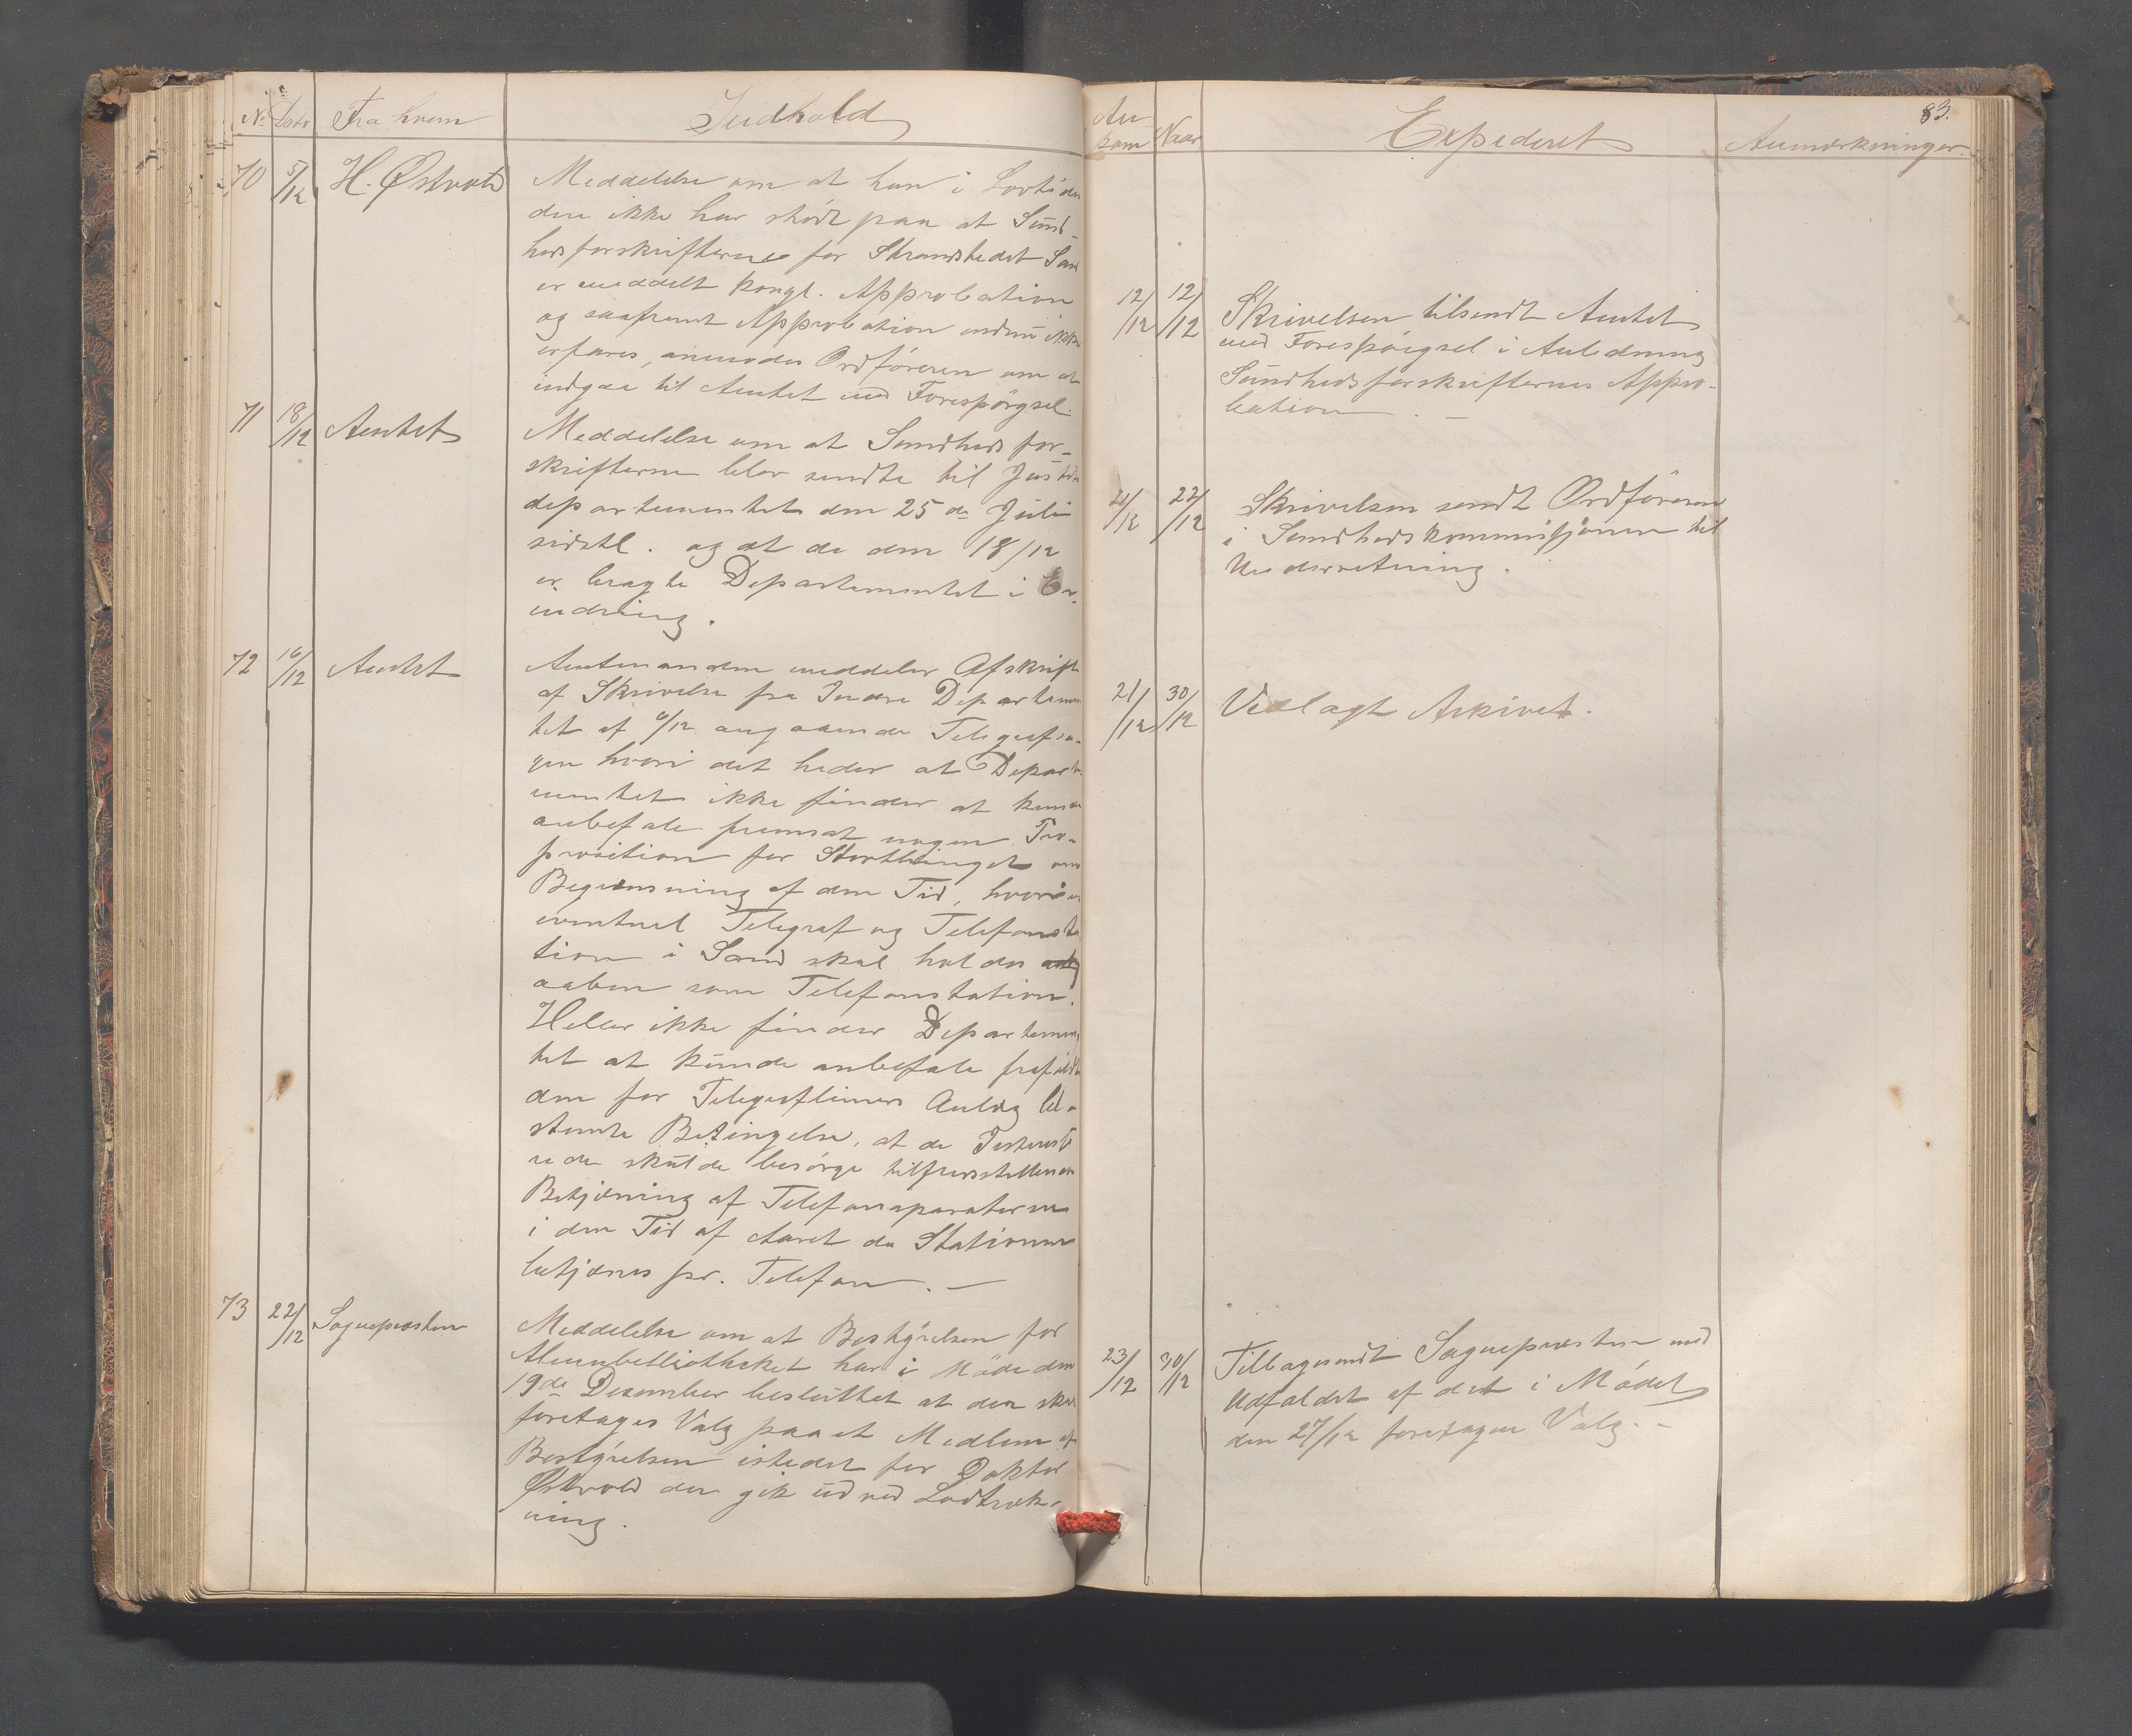 No Dato Fra hvem Indhold
70 5/12 H. Østvold Meddelelse om at han i Lovtiden
den ikke har stødt paa at Sund-
hedsforskrifterne for Strandstedet Sand
er meddelt kongl. Approbation
og saafremt Approbation endnu ikke
erfares, anmodes Ordføreren om at
indgaa til Amtet med Forespørgsel.
71 18/12 Amtet Meddelelse om at Sundhedsfor-
skrifterne blev sendte til Justits
departementet den 25de Juli
sidstl. og at de den 18/12
er bragte Departementet i Er-
indring.
72 16/12 Amtet Amtmanden meddeler Afskrift
af Skrivelse fra Indre Departemen
tet af 6/12 angaaende Telegrafsa-
gen hvori det heder at Departe
mentet ikke finder at kunde
anbefale fremsat nogen Pro-
position for Storthinget om
Begrænsning af den Tid, hvori en
eventuel Telegraf og Telefonsta
tion i Sand skal holdes
aaben som Telefonstation.
Heller ikke finder Departemen
tet at kunde anbefale frafaldt
den for Telegrafliniens Anlæg be-
stemte Betingelse, at de
skulde besørge tilfredsstillende
Betjening af Telefonaparaterne
i den Tid af Aaret da Stationen
betjenes pr. Telefon. —
73 22/12 Sognepresten Meddelelse om at Bestyrelsen for
Almubibliotheket har i Møde den
19de Desember besluttet at der skal
foretages Valg paa et Medlem af
Bestyrelsen istedet for Doktor
Østvold der gik ud ved Lodtræk-
ning.
83.
An-
kom Naar Expederet Anmærkninger.
12/12 12/12 Skrivelsen tilsendt Amtet
med Forespørgsel i Anledning
Sundhedsforskrifternes Appro-
bation. —
21/12 22/12 Skrivelsen sendt Ordføreren
i Sundhedskommissjonen til
Underretning.
21/12 30/12 Vedlagt Arkivet.
23/12 30/12 Tilbagesendt Sognepresten med
Udfaldet af det i Mødet
den 27/12 foretagne Valg. —